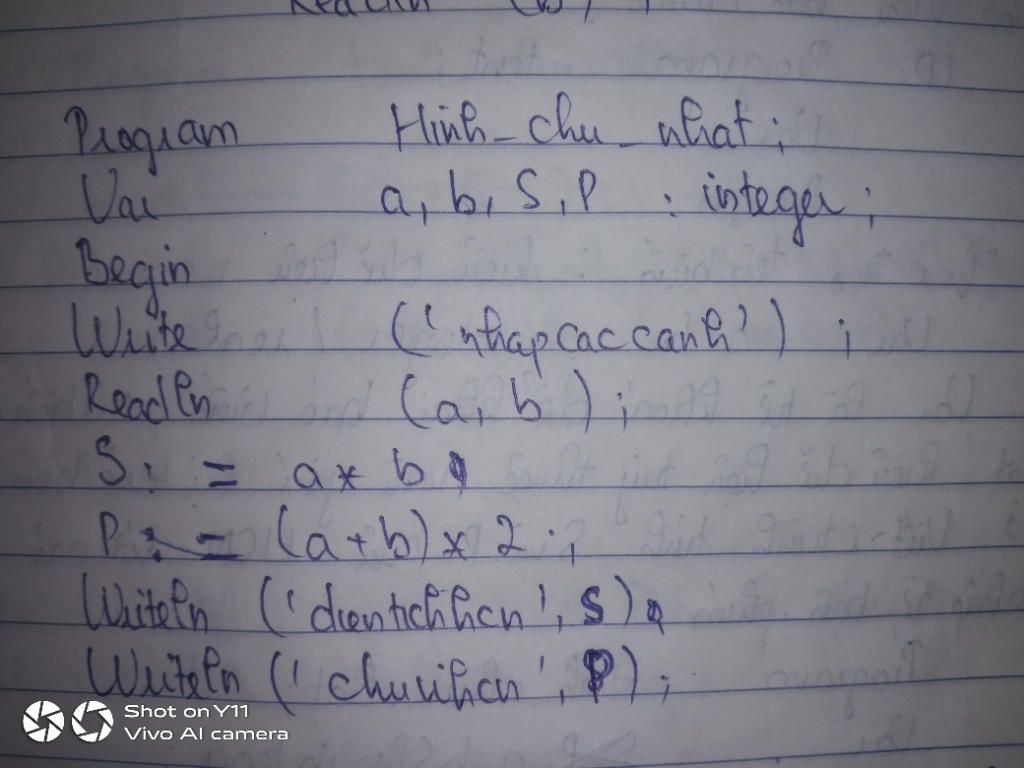 Readln (b) ;
Program Hinh_chu_nhat ;
Var a, b, S, P : integer ;
Begin
Write ('nhapcaccanh') ;
Readln (a, b) ;
S : = a * b ;
P : = (a + b) * 2 ;
Writeln ('dientichhcn', S) ;
Writeln ('chuvihcn', P) ;
Shot on Y11
Vivo AI camera